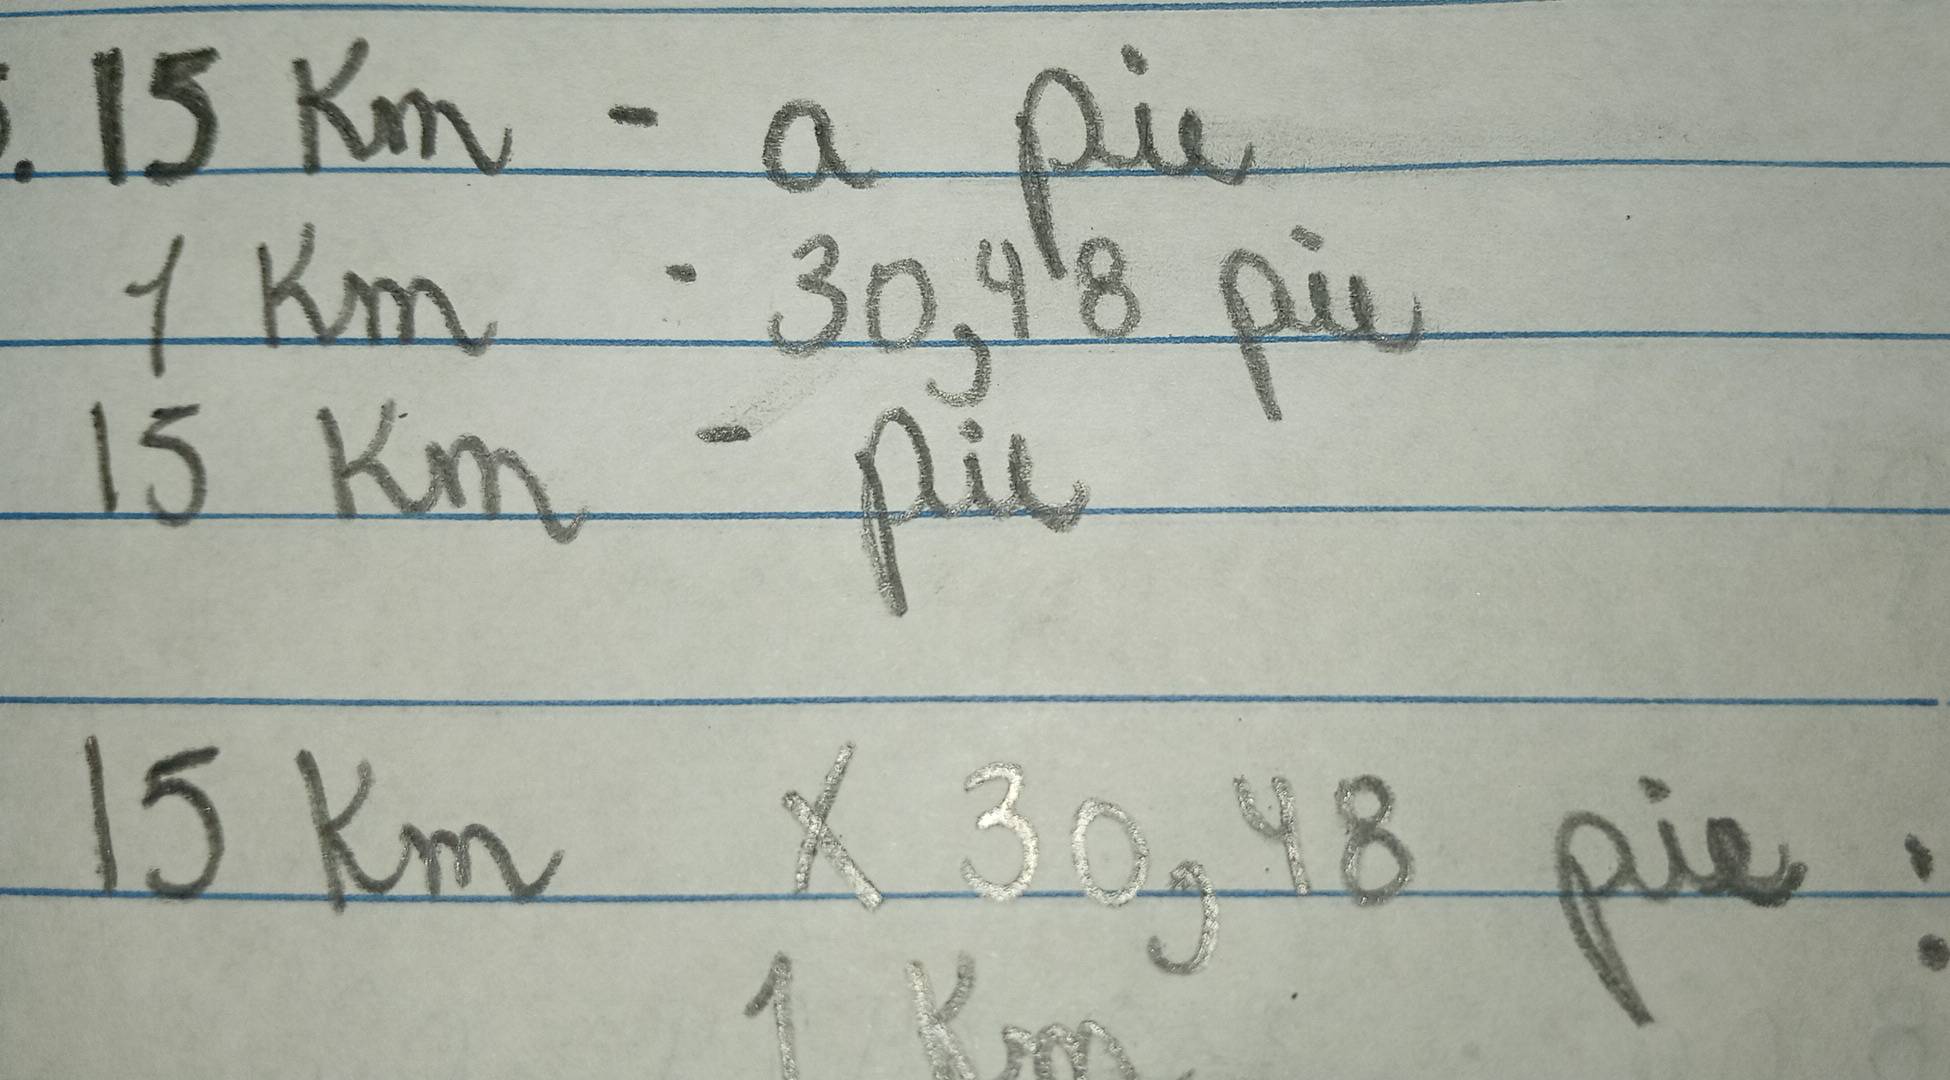 . 15 Km - a pie
1 Km - 30,48 pie
15 Km - pie
15 Km x 30,48 pie :
1 Km